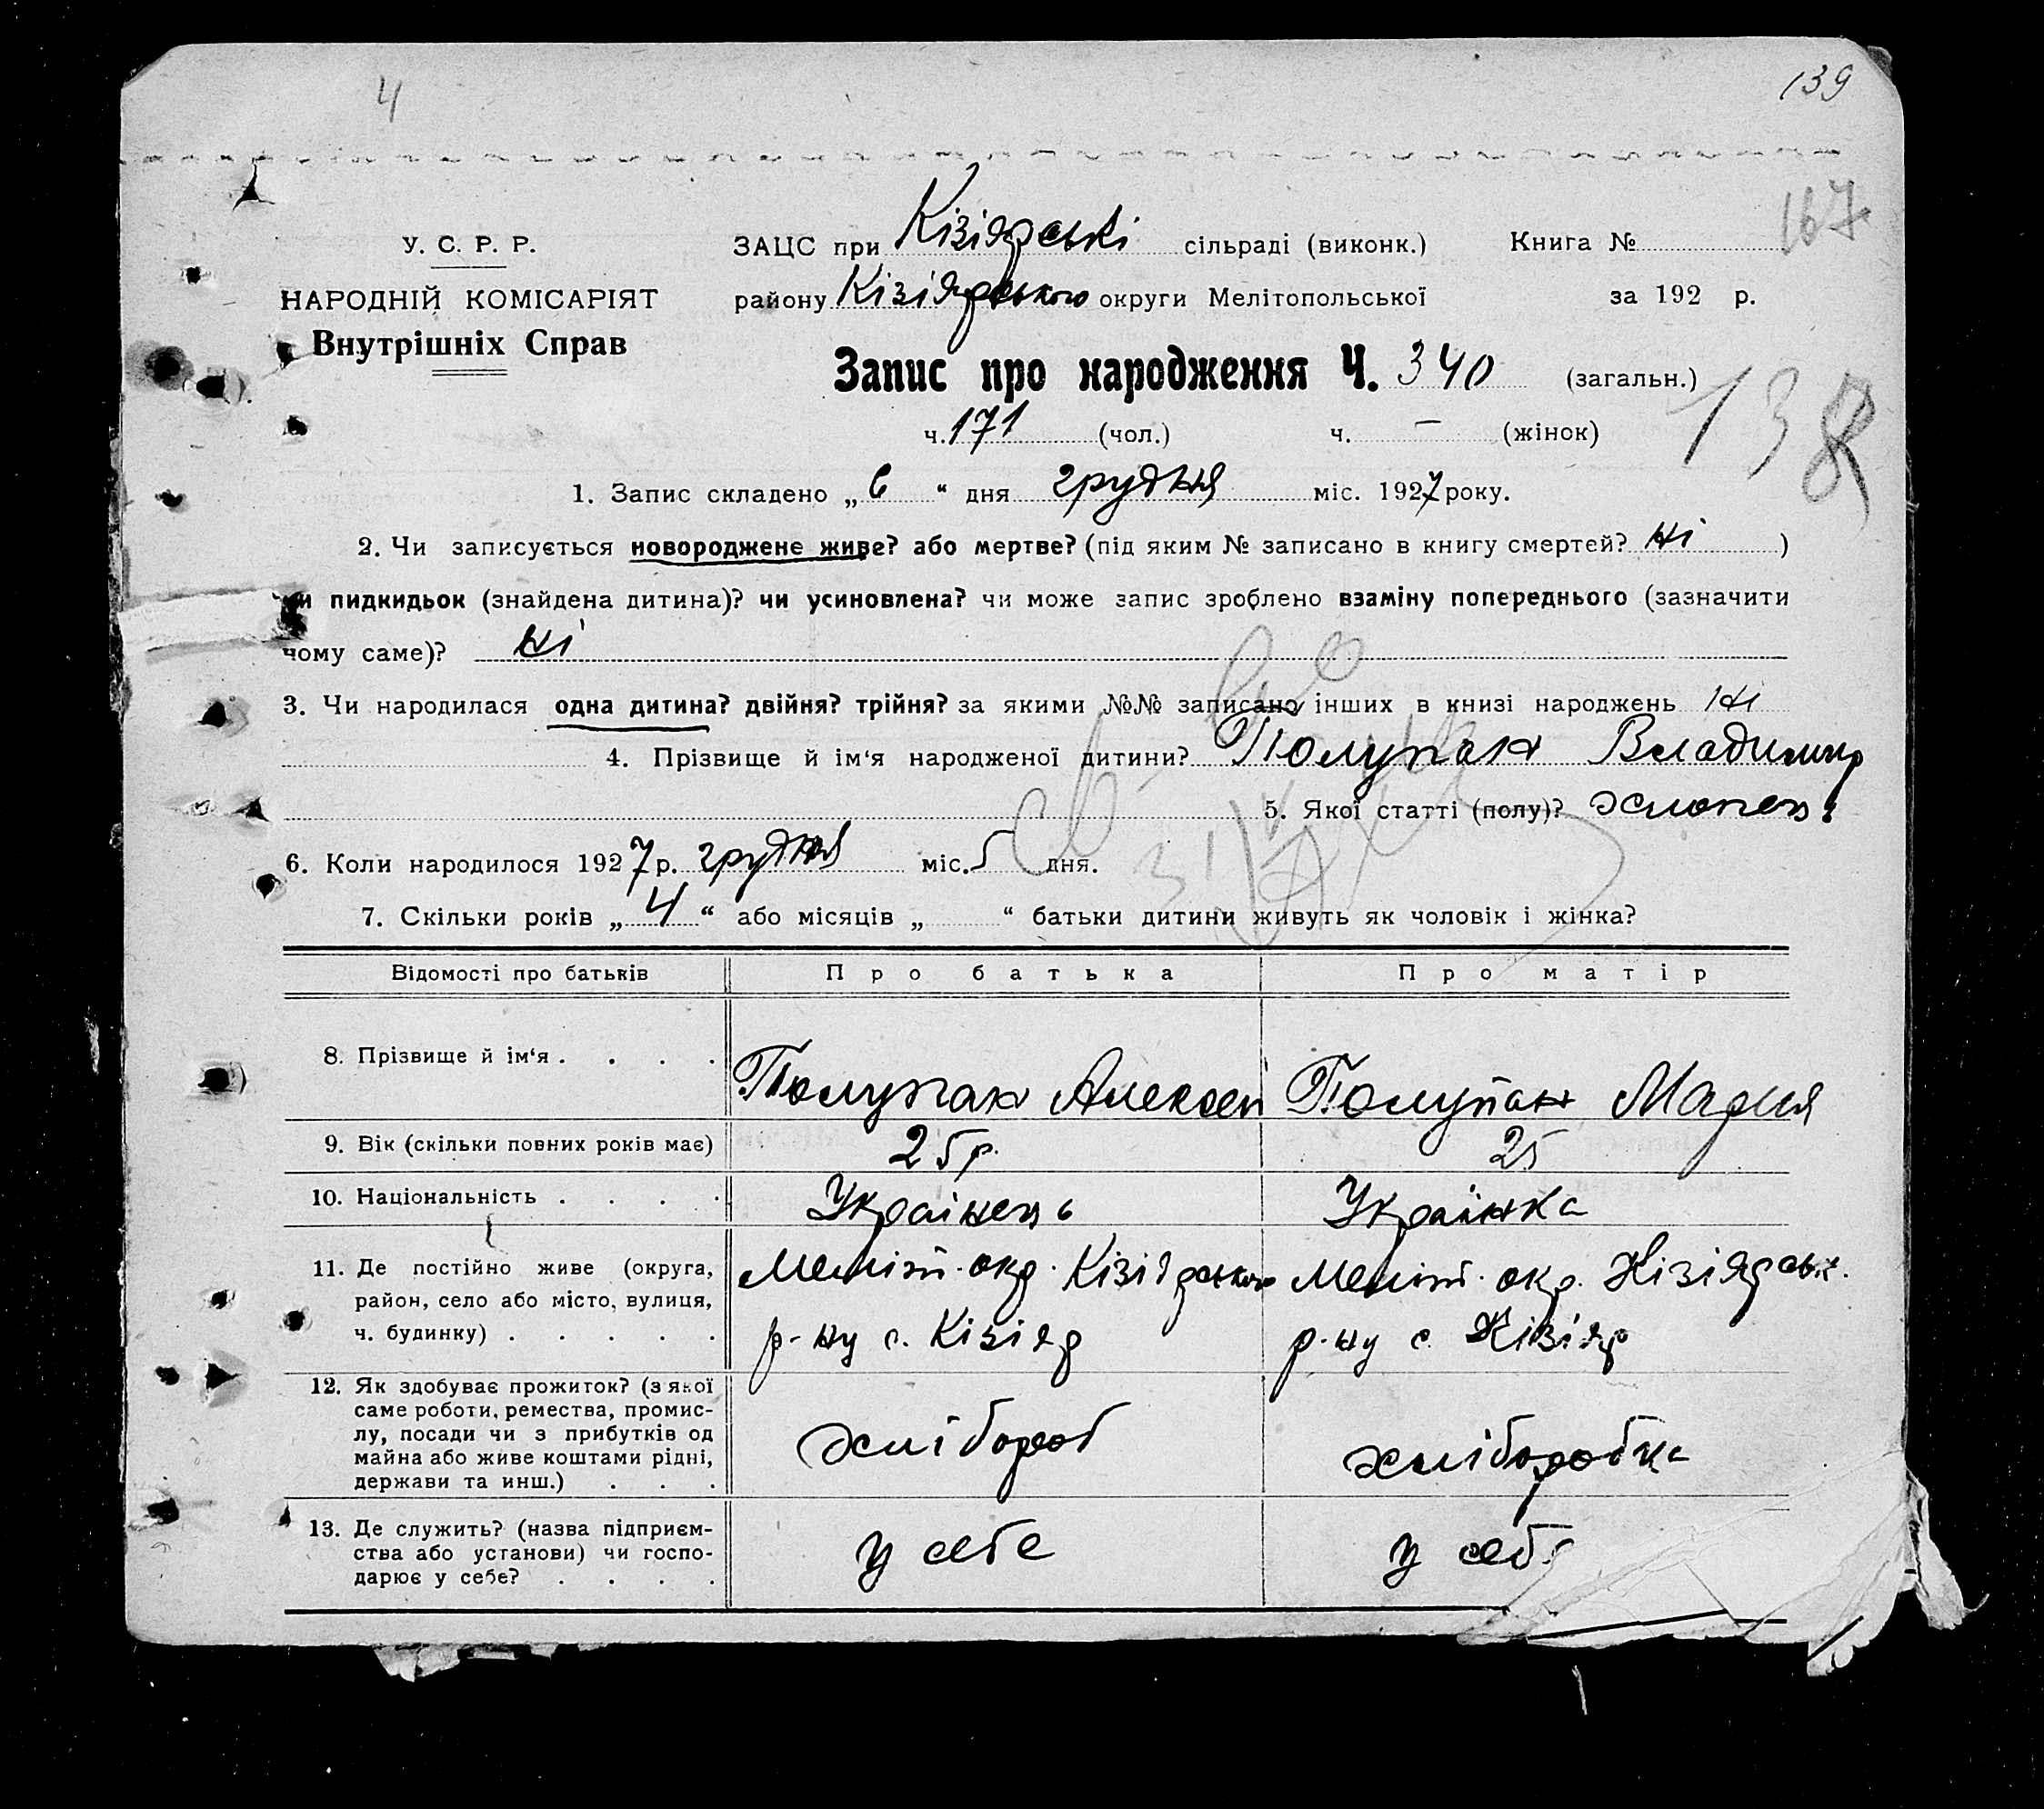 4
139
167
У. С. Р. Р.
НАРОДНІЙ КОМІСАРІЯТ
Внутрішніх Справ
ЗАЦС при Кізіярські сільраді (виконк.) Книга №
району Кізіярського округи Мелітопольської за 192 р.
Запис про народження Ч. 340 (загальн.)
138
ч. 171 (чол.) ч. — (жінок)
1. Запис складено „ 6 “ дня грудня міс. 1927 року.
2. Чи записується новороджене живе? або мертве? (під яким № записано в книгу смертей? ні )
чи пидкидьок (знайдена дитина)? чи усиновлена? чи може запис зроблено взаміну попереднього (зазначити
чому саме)? ні
3. Чи народилася одна дитина? двійня? трійня? за якими №№ записано інших в книзі народжень ні
4. Прізвище й ім‘я народженої дитини? Полупан Владимир
5. Якої статті (полу)? хлопець
6. Коли народилося 1927 р. грудня міс. 5 дня.
7. Скільки років „ 4 “ або місяців „ “ батьки дитини живуть як чоловік і жінка?
Відомості про батьків Про батька Про матір
8. Прізвище й ім‘я . . . . Полупан Алексей Полупан Мария
9. Вік (скільки повних років має) 25 р. 25
10. Національність . . . . Українець Українка
11. Де постійно живе (округа, Меліт. окр. Кізіярського Меліт. окр. Кізіярськ.
район, село або місто, вулиця, р-ну с. Кізіяр р-ну с. Кізіяр
ч. будинку) . . . . .
12. Як здобуває прожиток? (з якої
саме роботи, ремества, промис-
лу, посади чи з прибутків од хлібороб хліборобка
майна або живе коштами рідні,
держави та инш.) . . .
13. Де служить? (назва підприєм-
ства або установи) чи госпо- у себе у себе
дарює у себе? . . . .